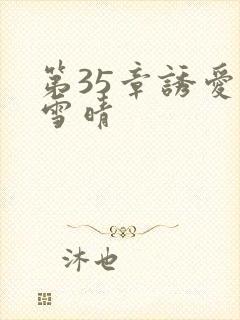 第35章誘愛
雪晴
沐也